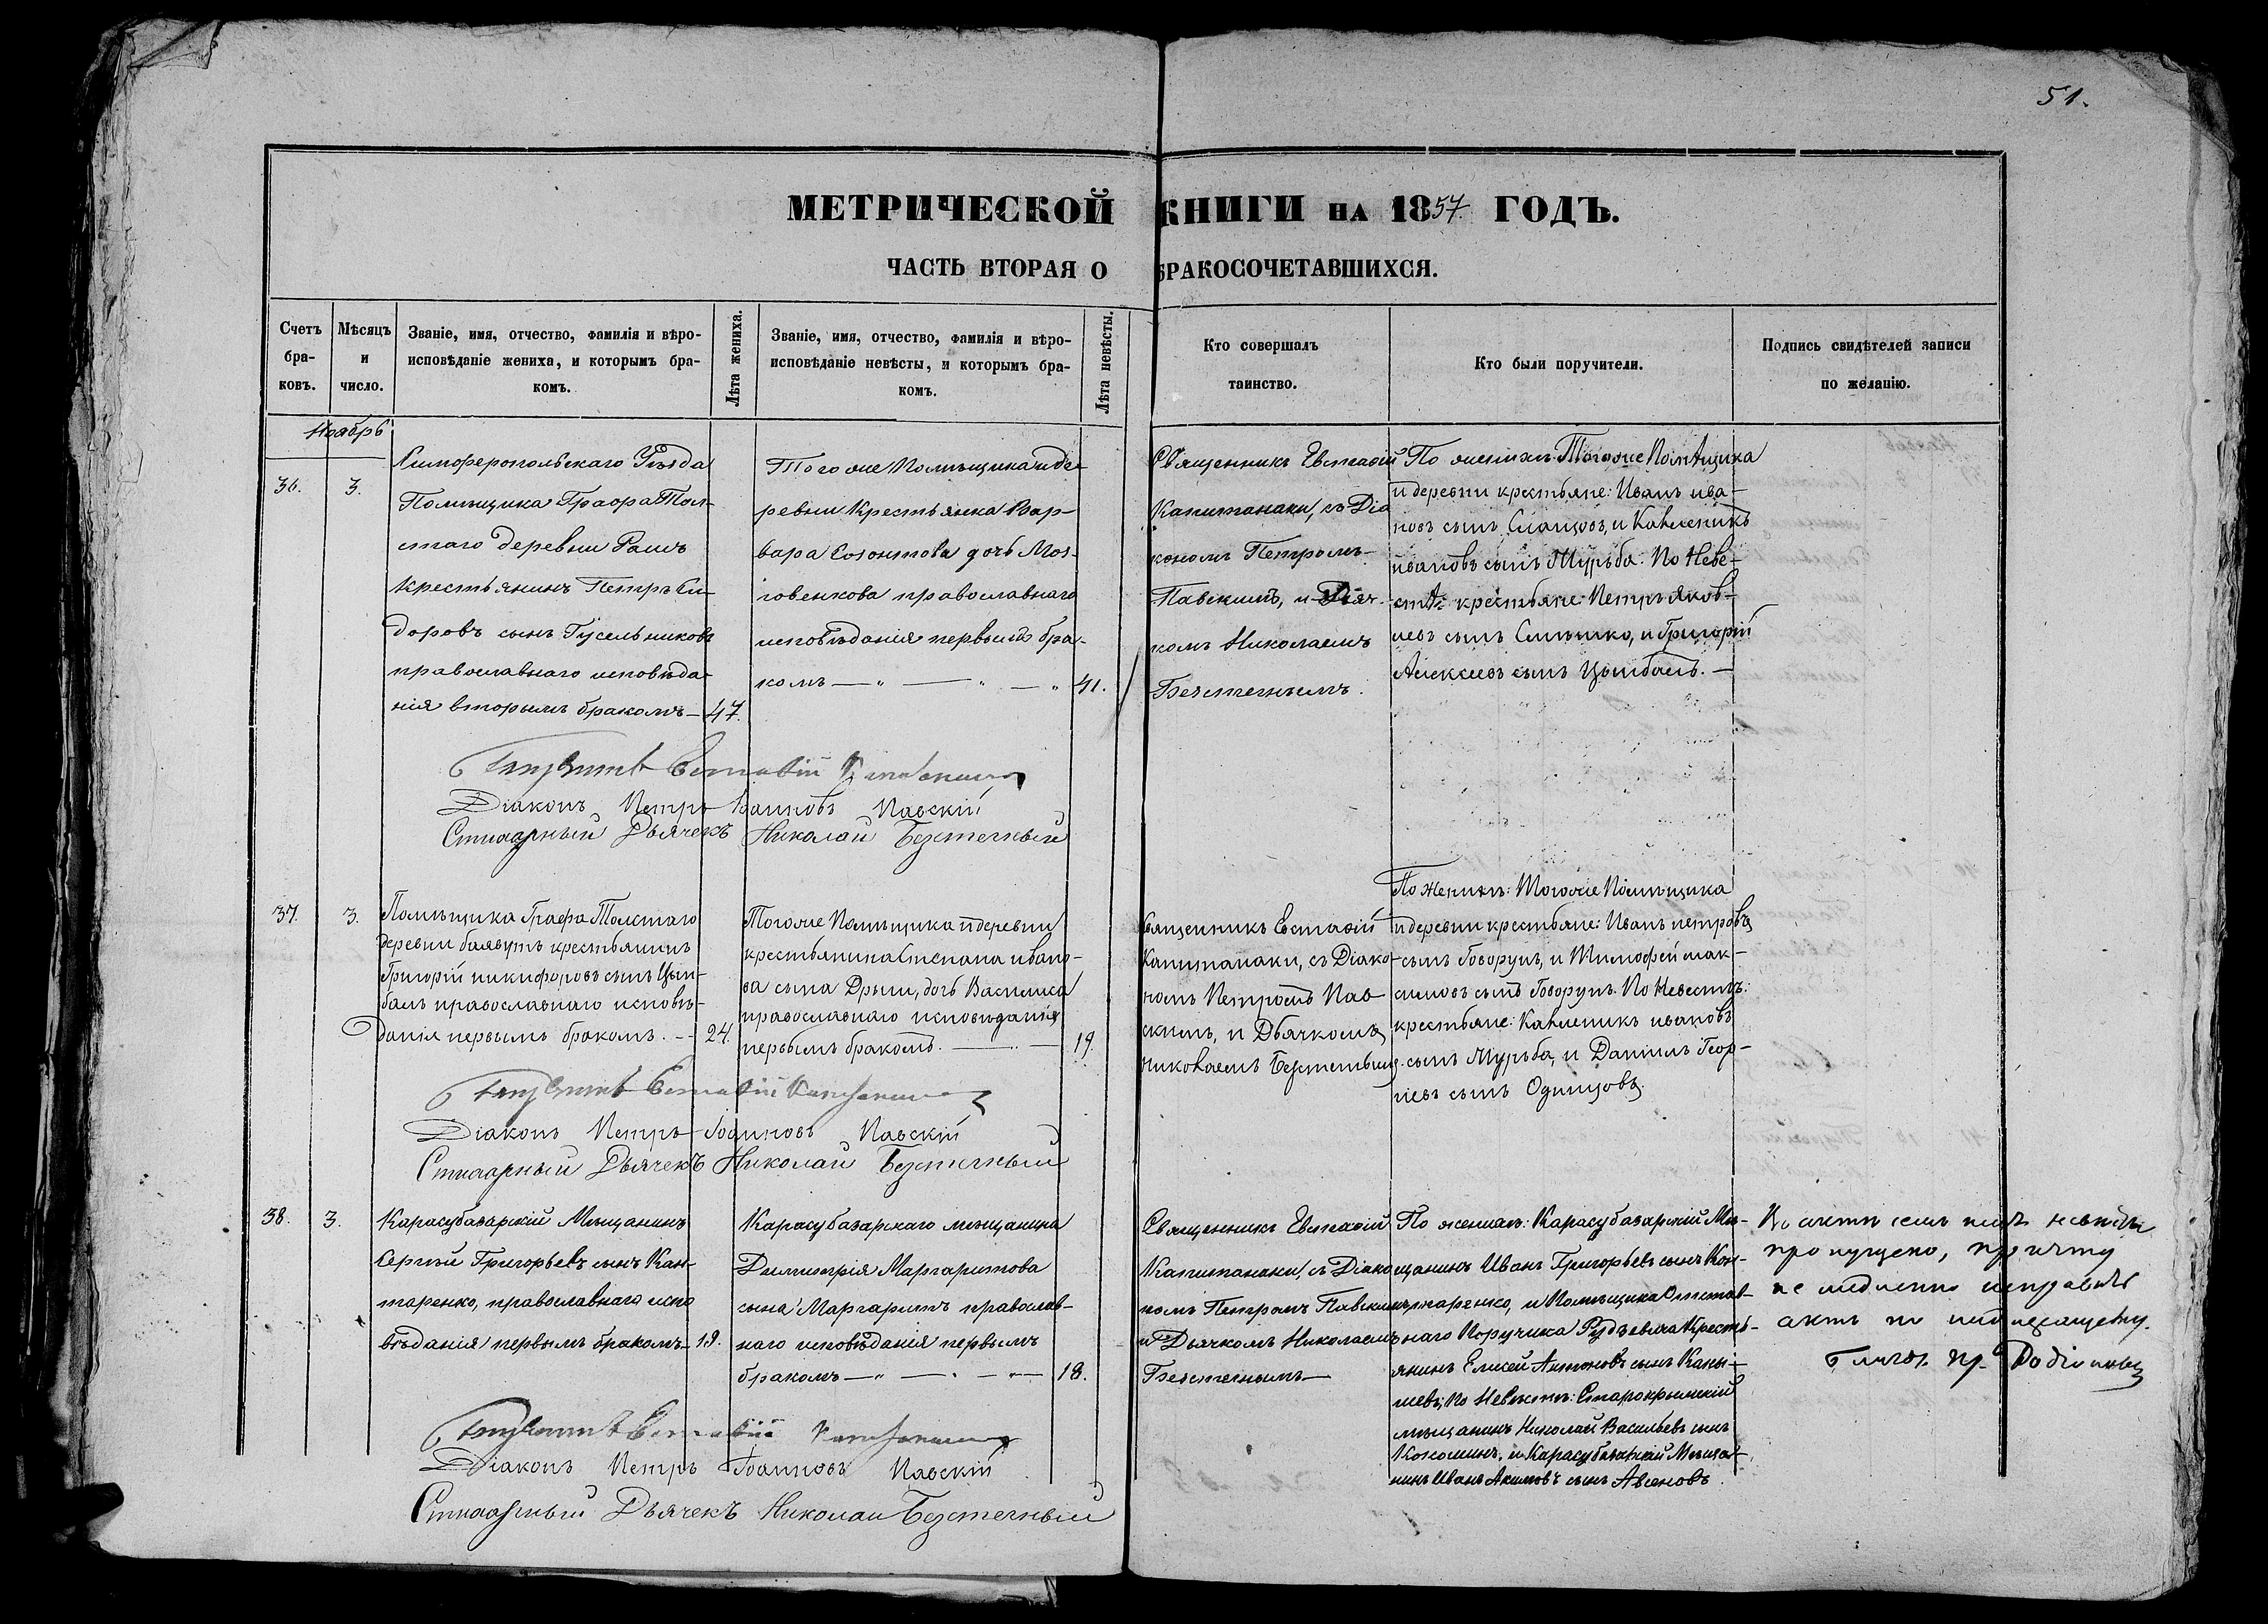 51.
МЕТРИЧЕСКОЙ КНИГИ НА 1857 ГОДЪ.
ЧАСТЬ ВТОРАЯ О БРАКОСОЧЕТАВШИХСЯ.
Счетъ
бра-
ковъ.
Мѣсяцъ
и
число.
Званіе, имя, отчество, фамилія и вѣро-
исповѣданіе жениха, и которымъ бра-
комъ.
Лѣта жениха.
Званіе, имя, отчество, фамилія и вѣро-
исповѣданіе невѣсты, и которымъ бра-
комъ.
Лѣта невѣсты.
Кто совершалъ
таинство.
Кто были поручители.
Подпись свидѣтелей записи
по желанію.
Ноябрь
36.
3.
Симферопольскаго Уѣзда
Помѣщика Графа Тол-
стаго деревни
крестьянинъ Петръ Си-
доровъ сынъ Гусельниковъ
православнаго исповѣда-
нія вторымъ бракомъ — 47.
Того же Помѣщика и де-
ревни Крестьянка Вар-
вара Созонтова дочь Моз-
говенкова православнаго
исповѣданія первымъ бра-
комъ — 41.
Священникъ Евстафій
Капитанаки, съ Діа
кономъ Петромъ
Павскимъ, и Дьяч-
комъ Николаемъ
Безстечнымъ.
По женихѣ: Того же Помѣщика
и деревни крестьяне: Иванъ ива-
новъ сынъ и
ивановъ сынъ Мурьба. По Неве-
стѣ: крестьяне: Петръ Яков-
левъ сынъ и Григорій
Алексеевъ сынъ Цымбалъ. —
Священникъ Евстафій Капитанаки
Діаконъ Петръ Іоанновъ Павскій
Стихарный Дьячекъ Николай Безстечный
37.
3.
Помѣщика Графа Толстаго
деревни крестьянинъ
Григорій никифоровъ сынъ Цым-
балъ православнаго исповѣ-
данія первымъ бракомъ. — 24.
Того же Помѣщика и деревни
крестьянина Степана ивано-
ва сына дочь Василиса
православнаго исповѣданія
первымъ бракомъ. — 19.
Священникъ Евстафій
Капитанаки, съ Діако-
номъ Петромъ Пав-
скимъ, и Дьячкомъ
Николаемъ Безстечнымъ.
По Женихѣ: Того же Помѣщика
и деревни крестьяне: Иванъ петровъ
сынъ Говорунъ, и Тимофей мак-
симовъ сынъ Говорунъ. По Невестѣ:
крестьяне: ивановъ
сынъ Мурьба, и Даніилъ Геор-
гіевъ сынъ Одинцовъ.
Священникъ Евстафій Капитанаки
Діаконъ Петръ Іоанновъ Павскій
Стихарный Дьячекъ Николай Безстечный
38.
3.
Карасубазарскій Мѣщанинъ
Сергѣй Григорьевъ сынъ Кан-
таренко, православнаго испо
вѣданія первымъ бракомъ — 19.
Карасубазарскаго мѣщанина
Димитрія Маргаритова
сына Маргаритъ православ-
наго исповѣданія первымъ
бракомъ — 18.
Священникъ Евстафій
Капитанаки, съ Діако
номъ Петромъ Павскимъ
и Дьячкомъ Николаемъ
Безстечнымъ —
По женихѣ: Карасубазарскій Мѣ-
щанинъ Иванъ Григорьевъ сынъ Кон-
таренко, и Помѣщика Отстав-
наго Поручика Рудзевича Кресть-
янинъ Елисей Антоновъ сынъ Каны-
шевъ; по Невѣстѣ: Старокрымскій
мѣщанинъ Николай Васильевъ сынъ
и Карасубазарскій Мѣща-
нинъ Иванъ Акимовъ сынъ Авсеновъ
Въ актѣ семъ имя невѣсты
пропущено, причту
не медленно исправить
актъ по надлежащему.
Благоч. пр. Родіоновъ
Священникъ Евстафій Капитанаки
Діаконъ Петръ Іоанновъ Павскій
Стихарный Дьячекъ Николай Безстечный